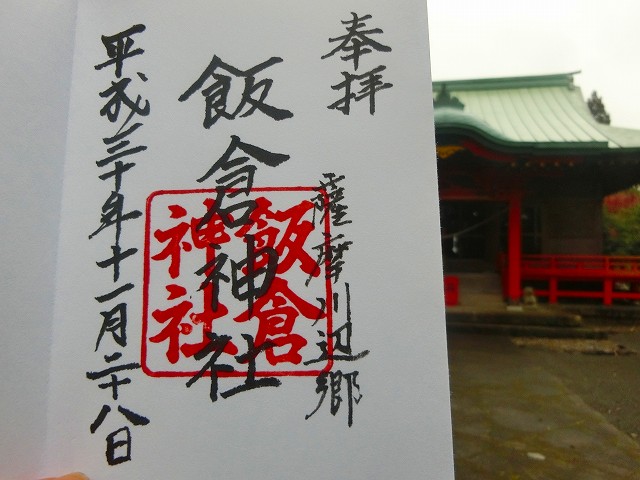 奉拝
薩摩川辺郷
飯倉神社
飯倉
神社
平成三十年十一月二十八日